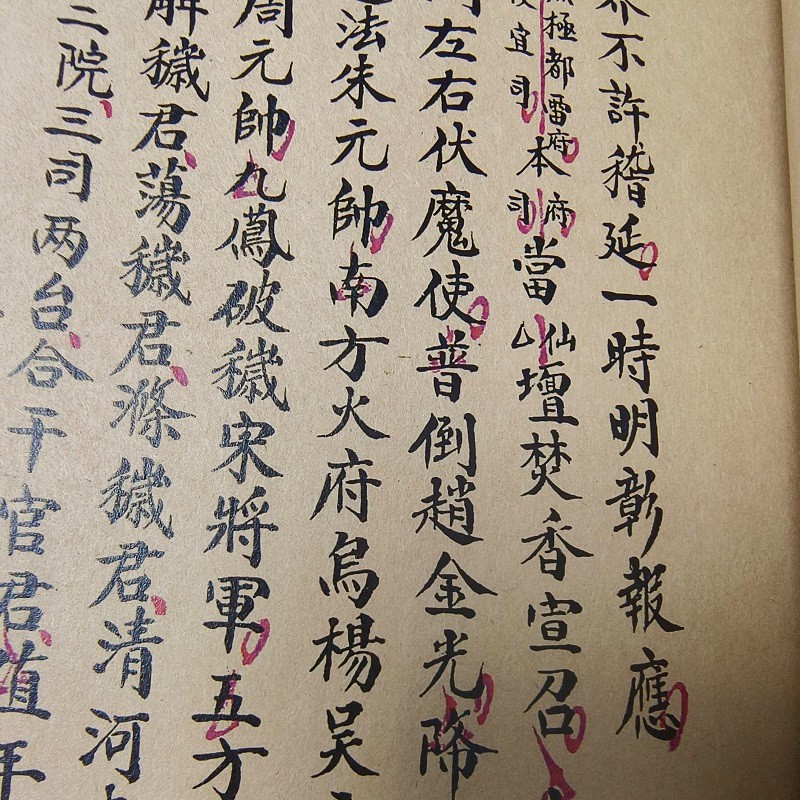 不許稽延一時明彰報應
極都雷府本府當仙壇焚香宣召
宜司司
左右伏魔使普倒趙金光降
法朱元帥南方火府烏楊吴
周元帥九鳳破穢宋將軍五方
解穢君蕩穢君滌穢君清河
二院三司两台合干官君值年